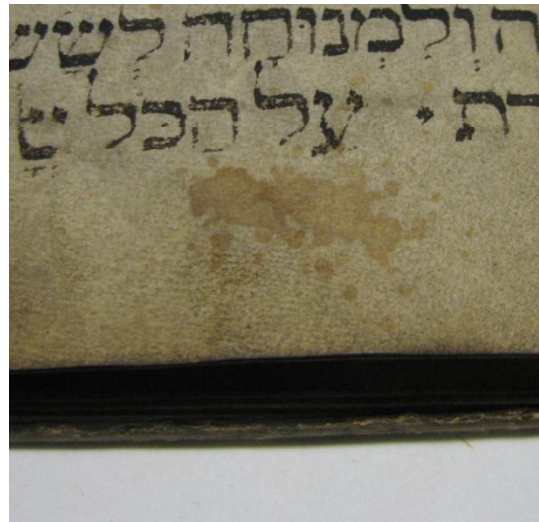 ה וְלִמְנוּחָה לְשָׂשׂ
רת · עַל הַכֹּל